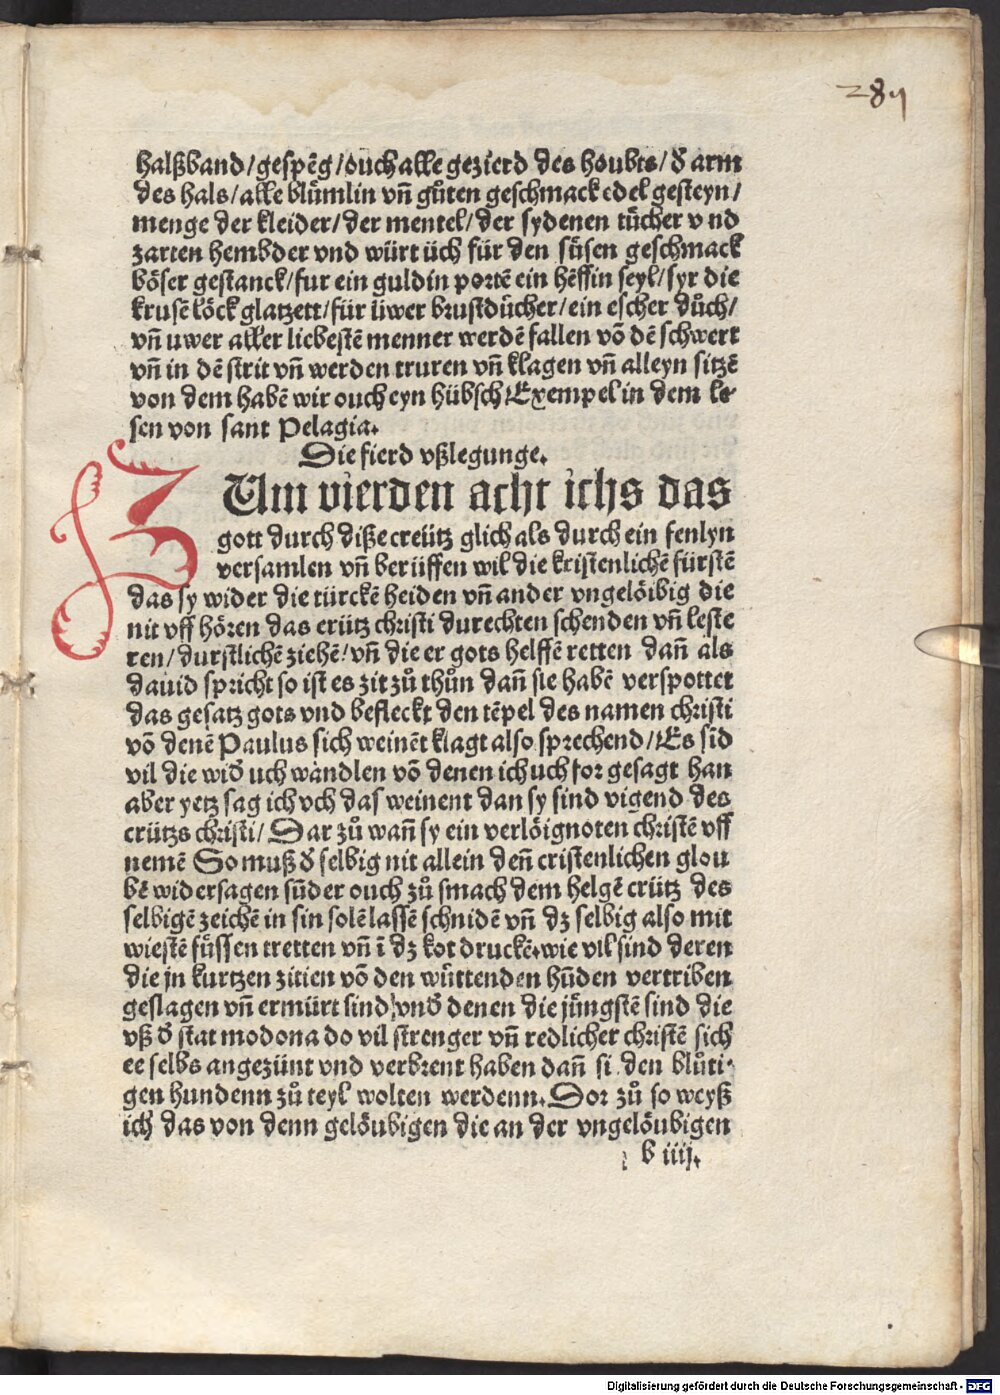 284
halßband/gespēg/ouch alle gezierd des houbts/ð arm
des hals/alle blümlin vn̄ gůten geschmack edel gesteyn/
menge der kleider/der mentel/der sydenen tücher vnd
zarten hembder vnd würt üch für den süsen geschmack
böser gestanck/fur ein guldin portē ein heffin seyl/syr die
krusē löck glatzett/für üwer brustdücher/ein escher důch/
vn̄ uwer aller liebestē menner werdē fallen vō dē schwert
vn̄ in dē strit vn̄ werden truren vn̄ klagen vn̄ alleyn sitzē
von dem habē wir ouch eyn hübsch Exempel in dem le-
sen von sant Pelagia.
Die fierd vßlegunge.
ZUm vierden acht ichs das
gott durch diße creütz glich als durch ein fenlyn
versamlen vn̄ berüffen wil die kristenlichē fürstē
das sy wider die türckē heiden vn̄ ander vngelöibig die
nit vff hören das crütz christi durechten schenden vn̄ leste
ren/durstlichē ziehē/vn̄ die er gots helffē retten dan̄ als
dauid spricht so ist es zit zů thůn dan̄ sie habē verspottet
das gesatz gots vnd befleckt den tēpel des namen christi
vō denē Paulus sich weinēt klagt also sprechend/Es sīd
vil die wið uch wandlen vō denen ich uch for gesagt han
aber yetz sag ich vch das weinent dan sy sind vigend des
crützs christi/Dar zů wan̄ sy ein verlöignoten christē vff
nemē So muß ð selbig nit allein den̄ cristenlichen glou
bē widersagen sūder ouch zů smach dem helgē crütz des
selbigē zeichē in sin solē lassē schnidē vn̄ dz selbig also mit
wiestē füssen tretten vn̄ ī dz kot druckē.wie vil sind deren
die jn kurtzen zitien vō den wüttenden hūden vertriben
geslagen vn̄ ermürt sind/vnð denen die jüngstē sind die
vß ð stat modona do vil strenger vn̄ redlicher christē sich
ee selbs angezünt vnd verbrent haben dan̄ si den blůti-
gen hundenn zů teyl wolten werdenn.Dor zů so weyß
ich das von denn gelöubigen die an der vngelöubigen
b iiij.
Digitalisierung gefördert durch die Deutsche Forschungsgemeinschaft - DFG